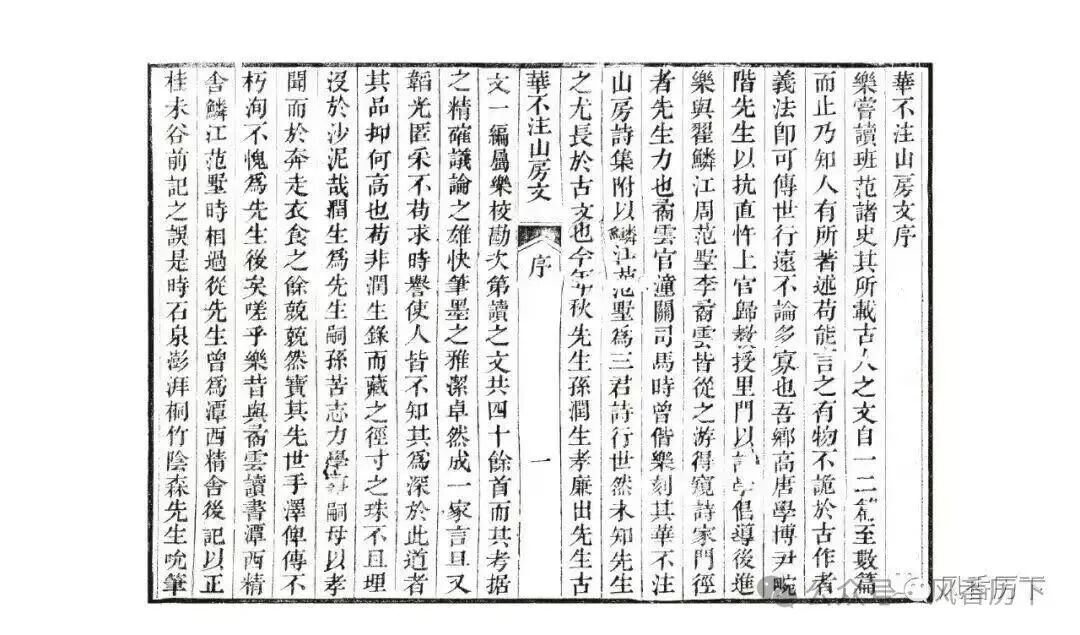 華不注山房文序
樂嘗讀班范諸史其所載古人之文自一二篇至數篇
而止乃知人有所著述苟能言之有物不詭於古作者
義法卽可傳世行遠不論多寡也吾鄉高唐學博尹畹
階先生以抗直忤上官歸教授里門以詩學倡導後進
樂與翟鱗江周范墅李喬雲皆從之游得窺詩家門徑
者先生力也喬雲官潼關司馬時曾偕樂刻其華不注
山房詩集附以鱗江范墅爲三君詩行世然未知先生
之尤長於古文也今年秋先生孫潤生孝廉出先生古
華不注山房文 序 一
文一編屬樂校勘次第讀之文共四十餘首而其考据
之精確議論之雄快筆墨之雅潔卓然成一家言且又
韜光匿采不苟求時譽使人皆不知其爲深於此道者
其品抑何高也苟非潤生錄而藏之徑寸之珠不且埋
沒於沙泥哉潤生爲先生嗣孫苦志力學事嗣母以孝
聞而於奔走衣食之餘兢兢然寶其先世手澤俾傳不
朽洵不愧爲先生後矣嗟乎樂昔與喬雲讀書潭西精
舍鱗江范墅時相過從先生曾爲潭西精舍後記以正
桂未谷前記之誤是時石泉澎湃桐竹陰森先生吮筆
公众号·风香历下